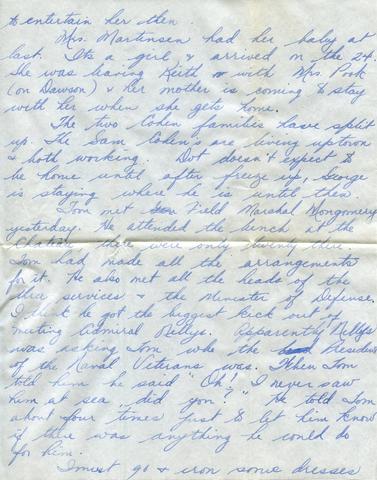 to entertain her then.
Mrs. Martensen had her baby at
last. Its a girl & arrived on the 24.
She was leaving Keith with Mrs. Pook
(on Dawson) & her mother is coming to stay
with her when she gets home.
The two Cohen families have split
up. The Sam Cohen's are living uptown
& both working. Dot doesn't expect to
be home until after freeze up, George
is staying where he is until then.
Tom met Field Marshal Montgomery
yesterday. He attended the lunch at the
Chateau there were only twenty there.
Tom had made all the arrangements
for it. He also met all the heads of the
three services & the Minister of Defense.
I think he got the biggest kick out of
meeting Admiral Nelles. Apparently Nelles
was asking Tom who the President
of the Naval Veterans was. When Tom
told him he said "Oh! I never saw
him at sea, did you?" He told Tom
about four times just to let him know
if there was anything he could do
for him.
I must go & iron some dresses